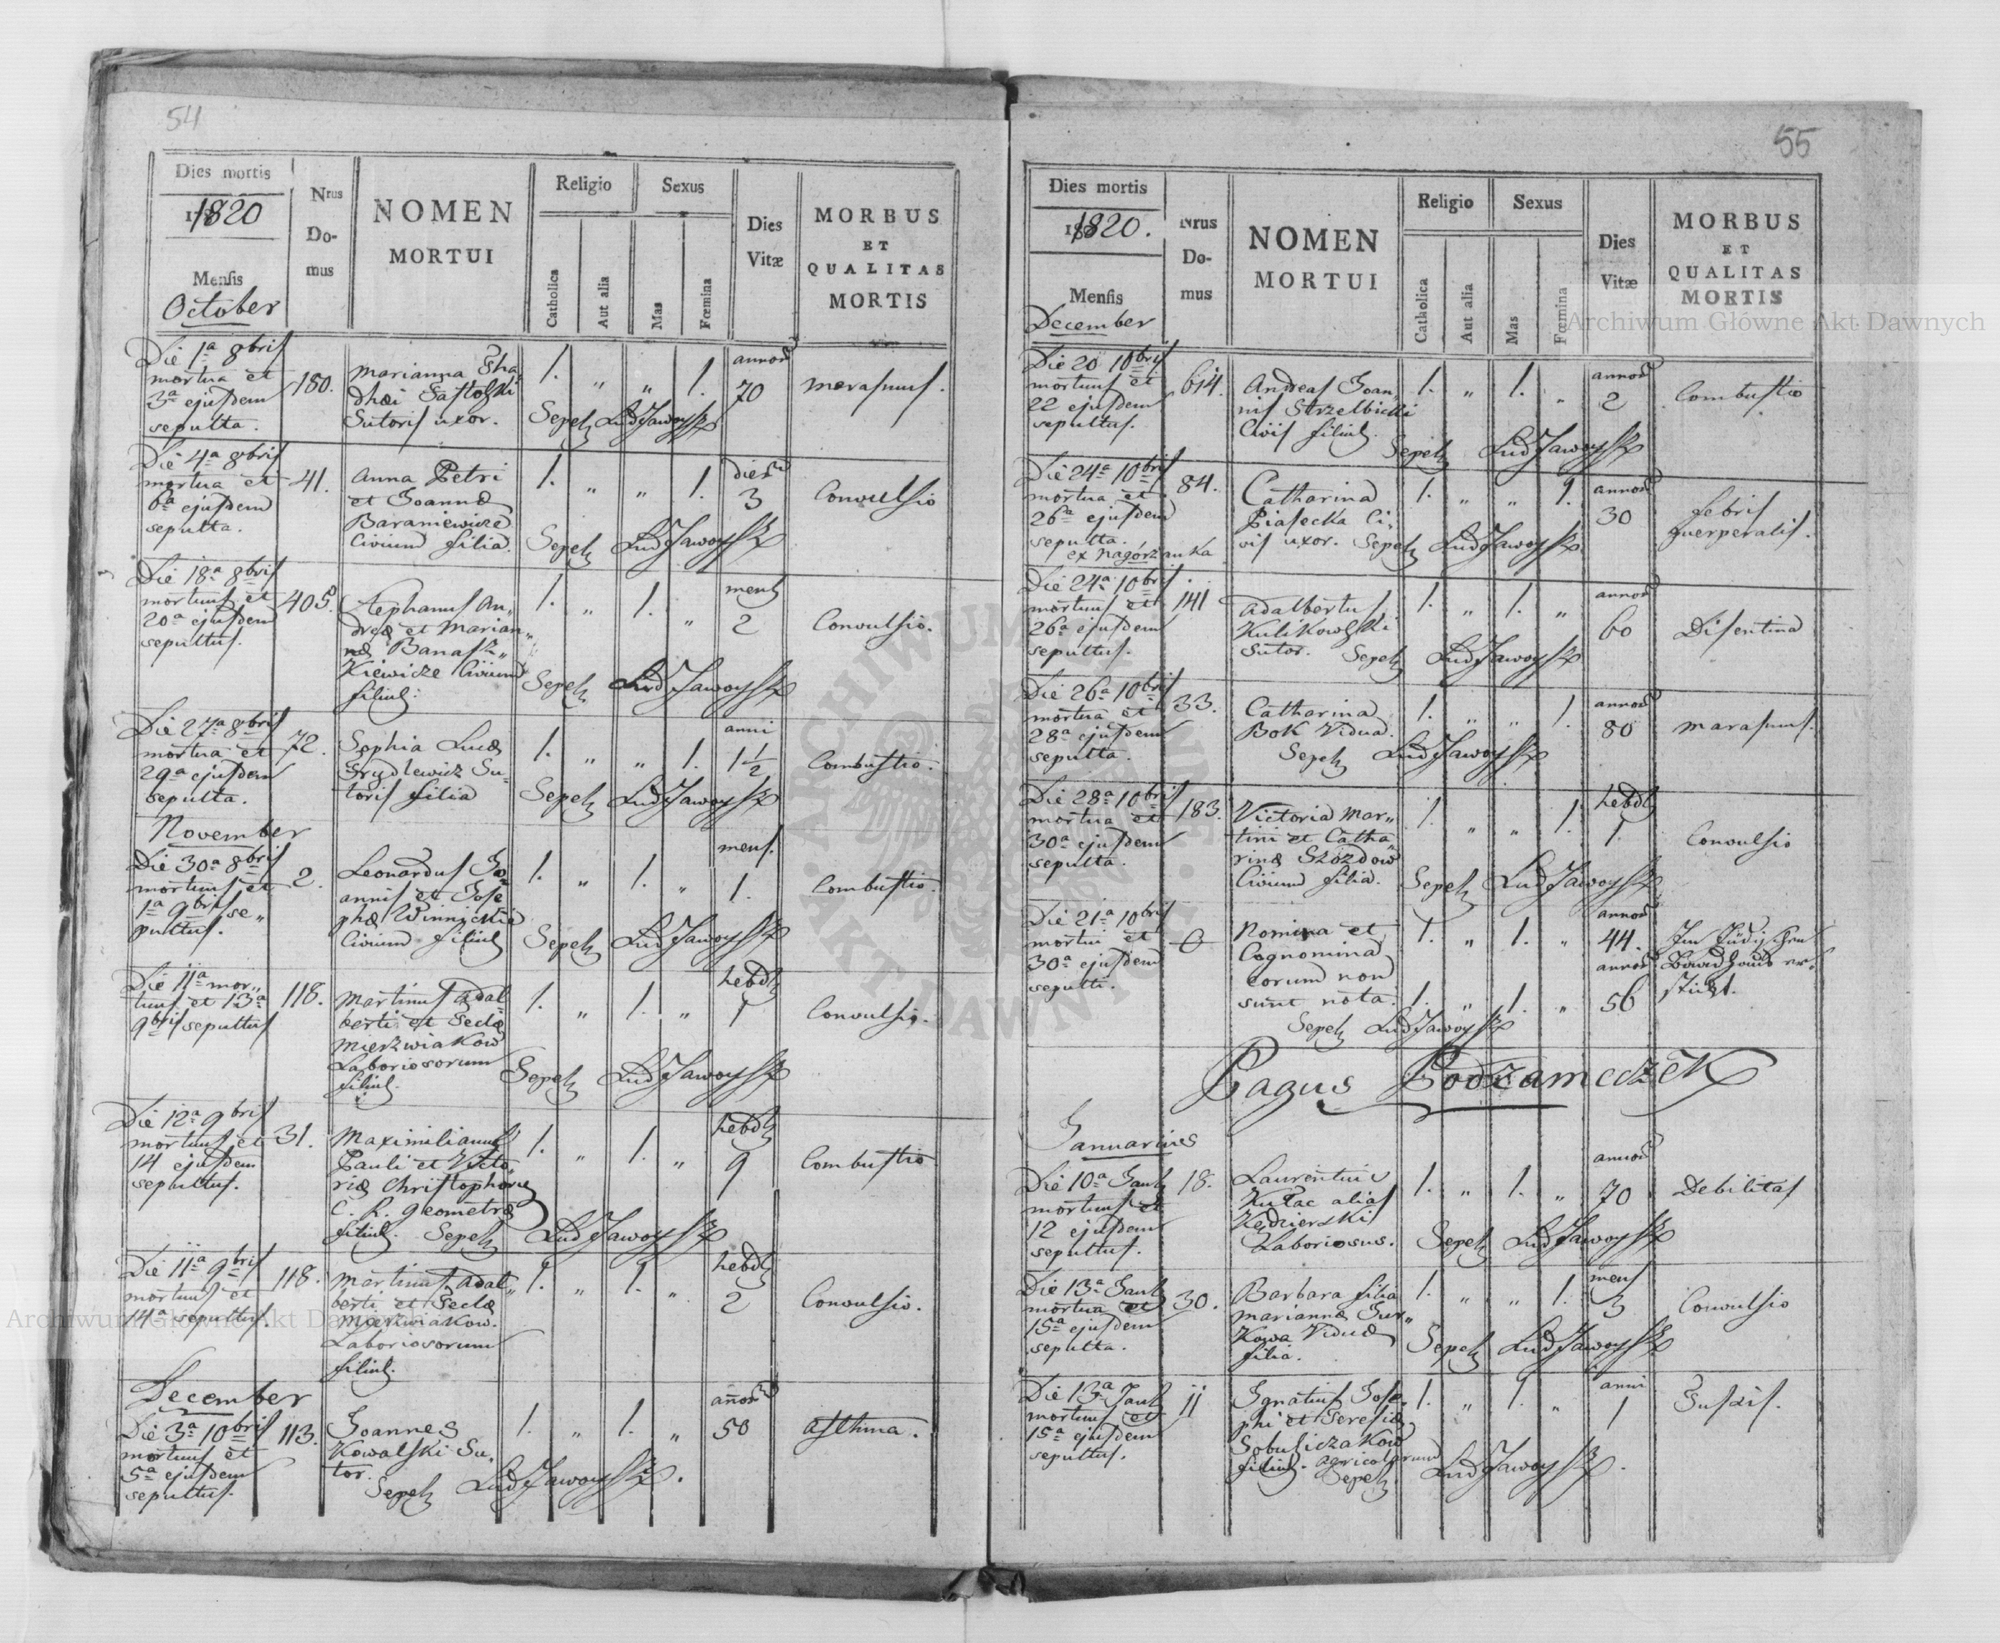 54
Dies mortis
1820
Mensis
October
Nrus
Do-
mus
NOMEN
MORTUI
Religio
Catholica
Aut alia
Sexus
Mas
Fœmina
Dies
Vitæ
MORBUS
ET
QUALITAS
MORTIS
Die 1a 8bris
mortua et
3a ejusdem
sepulta.
180.
Marianna Tha
dhæi
Sutoris uxor.
1. „ „ 1.
annor
70
Marasmus.
Sepel Lud Jaworski
Die 4a 8bris
mortua et
6a ejusdem
sepulta.
41.
Anna Petri
et Joannæ
Baraniewicze
Civium filia.
1. „ „ 1.
dies
3
Convulsio
Sepel Lud Jaworski
Die 18a 8bris
mortuus et
20a ejusdem
sepultus.
405.
Stephanus An„
dreæ et Marian„
næ Banasz„
Kiewicze Civium
filius.
1. „ 1. „
mens
2
Convulsio.
Sepel Lud Jaworski
Die 27a 8bris
mortua et
29a ejusdem
sepulta.
72.
Sophia Lucæ
Grydlewicz Su„
toris filia
1. „ „ 1.
anni
1 1/2
Combustio.
Sepel Lud Jaworski
November
Die 30a 8bris
mortuus et
1a 9bris se„
pultus.
2.
Leonardus Jo
annis et Jose
phæ Winnickie
Civium filius
1. „ 1. „
mens.
1.
Combustio.
Sepel Lud Jaworski
Die 11a mor„
tuus et 13a
9bris sepultus
118.
Martinus Adal
berti et Teclæ
Mierzwiakow
Laboriosorum
filius.
1. „ 1. „
hebd
1
Convulsio.
Sepel Lud Jaworski
Die 12a 9bris
mortuus et
14 ejusdem
sepultus.
31.
Maximilianus
Pauli et Victo„
riæ Christophory
C. R. geometræ
filius.
1. „ 1. „
hebd
9
Combustio
Sepel Lud Jaworski
Die 11a 9bris
mortuus et
14a sepultus.
118.
Martinus Adal„
berti et Teclæ
Mierzwiakow.
Laboriosorum
filius.
1. „ 1. „
hebd
2
Convulsio.
December
Die 3a 10bris
mortuus et
5a ejusdem
sepultus.
113.
Joannes
Kowalski Su„
tor.
1. „ 1. „
annor
50
Asthma.
Sepel Lud Jaworski.
55
Dies mortis
1820.
Mensis
December
Nrus
Do-
mus
NOMEN
MORTUI
Religio
Catholica
Aut alia
Sexus
Mas
Fœmina
Dies
Vitæ
MORBUS
ET
QUALITAS
MORTIS
Die 20 10bris
mortuus et
22 ejusdem
sepultus.
614.
Andreas Joan„
nis Strzelbicki
Civis filius.
1. „ 1. „
annor
2
Combustio
Sepel Lud Jaworski
Die 24a 10bris
mortua et
26a ejusdem
sepulta.
ex Nagórzanka
84.
Catharina
Piasecka Ci„
vis uxor.
1. „ „ 1.
annor
30
Febris
puerperalis.
Sepel Lud Jaworski
Die 24a 10bris
mortuus et
26a ejusdem
sepultus.
141
Adalbertus
Kulikowski
Sutor.
1. „ 1. „
annor
60
Disentina
Sepel Lud Jaworski
Die 26a 10bris
mortua et
28a ejusdem
sepulta.
33.
Catharina
Bok Vidua.
1. „ „ 1.
annor
80
Marasmus.
Sepel Lud Jaworski
Die 28a 10bris
mortua et
30a ejusdem
sepulta.
183.
Victoria Mar„
tini et Catha„
rinæ Szozdow
Civium filia.
1. „ „ 1.
hebd
1.
Convulsio
Sepel Lud Jaworski
Die 21a 10bris
mortui et
30a ejusdem
sepulti.
0
Nomina et
Cognomina
eorum non
sunt nota.
1. „ 1. „
annor
44.
1. „ 1. „
annor
56
Im Jüdischen
Baadhaus er„
stickt.
Sepel Lud Jaworski
Pagus Podzameczek
Januarius
Die 10a Janl
mortuus et
12 ejusdem
sepultus.
18.
Laurentius
Kułac alias
Kędzierski
Laboriosus.
1. „ 1. „
annor
70
Debilitas
Sepel Lud Jaworski
Die 13a Janl
mortua et
15a ejusdem
sepulta.
30.
Barbara filia
Mariannæ Sur„
Kowa Viduæ
filia.
1. „ „ 1.
mens
3
Convulsio
Sepel Lud Jaworski
Die 13a Janl
mortuus et
15a ejusdem
sepultus.
11
Ignatius Jose„
phi et Teresiæ
Sobusiczakow
filius. agricolarum
1. „ 1. „
anni
1
Tussis.
Sepel Lud Jaworski.
Archiwum Główne Akt Dawnych
Archiwum Główne Akt Dawnych
ARCHIWUM GŁÓWNE AKT DAWNYCH